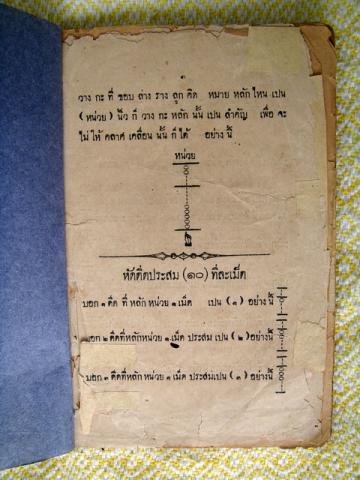 ๑
วาง กะ ที่ ขอบ ล่าง ราง ลูก คิด หมาย หลัก ไหน เปน
(หน่วย) นิ้ว ก็ วาง กะ หลัก นั้น เปน สำคัญ เพื่อ จะ
ไม่ ให้ คลาศ เคลื่อน นั้น ก็ ได้ อย่าง นี้
หน่วย
หัดคิดประสม (๑๐) ที่ละเม็ด
บอก ๑ คิด ที่ หลัก หน่วย ๑ เม็ด เปน (๑) อย่างนี้
บอก ๒ คิดที่หลักหน่วย ๑ เม็ด ประสม เปน (๒) อย่างนี้
บอก ๓ คิดที่หลัก หน่วย ๑ เม็ด ประสมเปน (๓) อย่างนี้